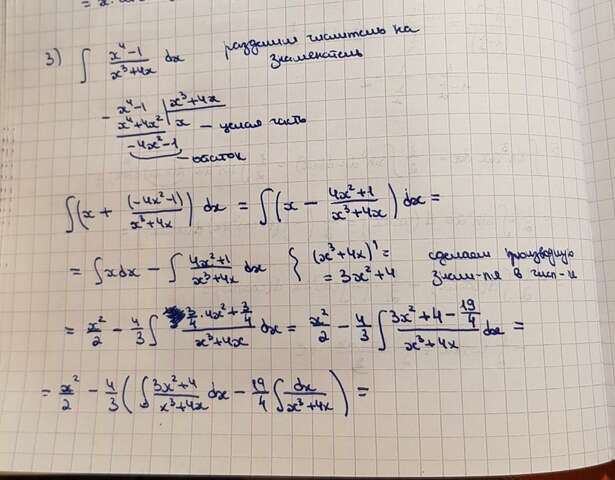 3) ∫ x⁴-1 / x³+4x dx разделим числитель на
знаменатель
- x⁴-1 | x³+4x
x⁴+4x² | x - целая часть
-4x²-1 - остаток
∫(x + (-4x²-1) / x³+4x) dx = ∫(x - 4x²+1 / x³+4x) dx =
= ∫xdx - ∫ 4x²+1 / x³+4x dx { (x³+4x)' = сделаем производную
= 3x²+4 знам-ля в числ-ле
= x²/2 - 4/3 ∫ 3/4·4x²+3/4 / x³+4x dx = x²/2 - 4/3 ∫ 3x²+4-19/4 / x³+4x dx =
= x²/2 - 4/3 (∫ 3x²+4 / x³+4x dx - 19/4 ∫ dx / x³+4x) =